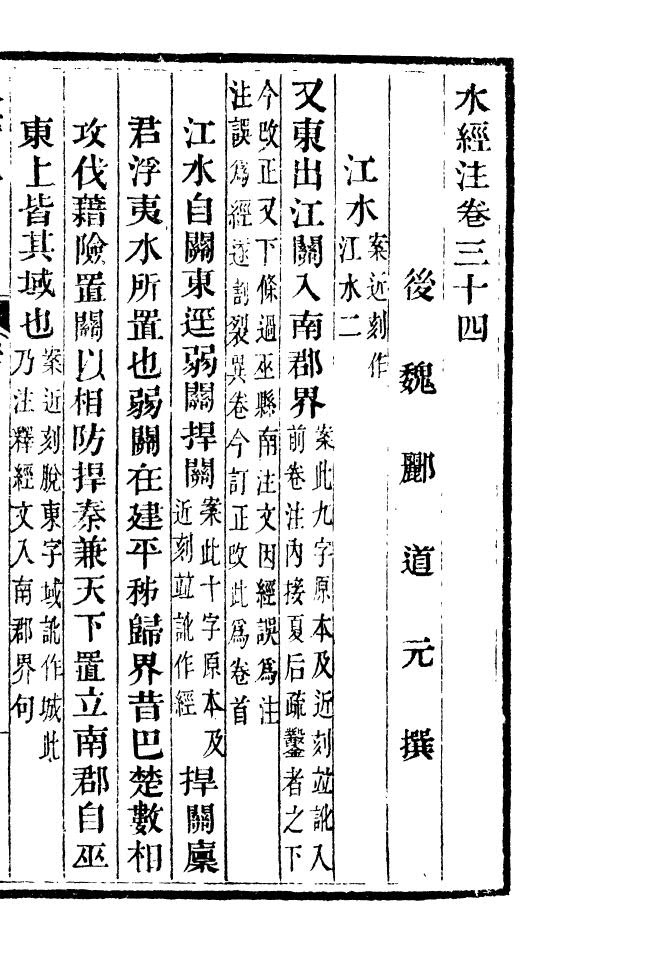 水經注卷三十四
後魏酈道元撰
江水案近刻作江水二
又東出江關入南郡界案此九字原本及近刻並訛入前卷注內接夏后疏鑿者之下
今改正又下條過巫縣南注文因經誤為注注誤為經遂割裂異卷今訂正改此為卷首
江水自關東逕弱關捍關案此十字原本及近刻並訛作經捍關廩
君浮夷水所置也弱關在建平秭歸界昔巴楚數相
攻伐藉險置關以相防捍秦兼天下置立南郡自巫
東上皆其域也案近刻脫東字域訛作城此乃注釋經文入南郡界句